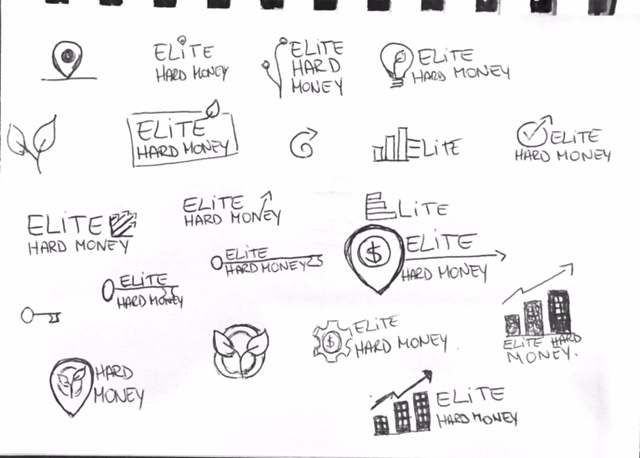 ELiTE
HARD MONEY
ELiTE
HARD
MONEY
ELiTE
HARD MONEY
ELiTE
HARD MONEY
ELiTE
ELiTE
HARD MONEY
ELiTE
HARD MONEY
ELiTE
HARD MONEY
ELiTE
$
ELiTE
HARD MONEY
ELiTE
HARD MONEY
ELiTE
HARD MONEY
$
ELiTE
HARD MONEY
ELiTE HARD
MONEY.
HARD
MONEY
ELiTE
HARD MONEY